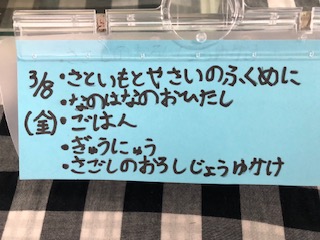 3/8・さといもとやさいのふくめに
・なのはなのおひたし
(金)・ごはん
・ぎゅうにゅう
・さごしのおろしじょうゆかけ